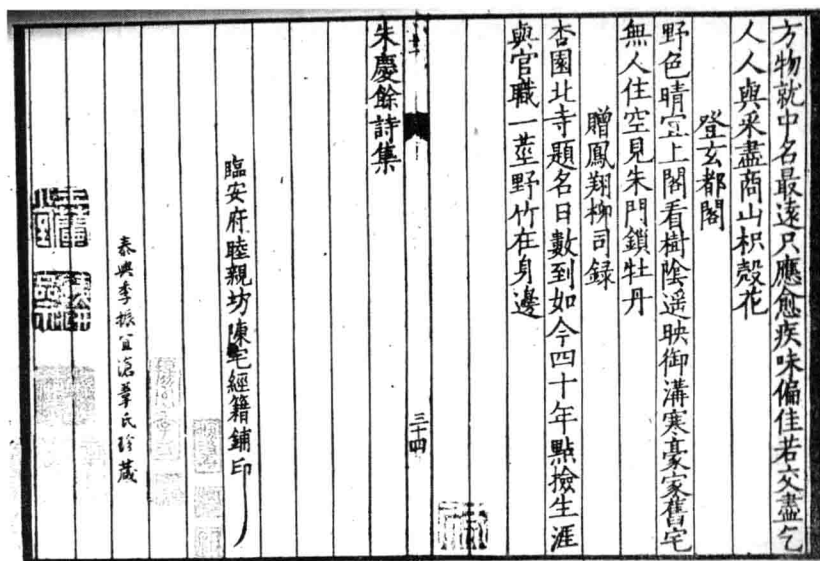 方物就中名最遠只應愈疾味偏佳若交盡乞
人人與采盡商山枳殼花
登玄都閣
野色晴宜上閣看樹陰遥映御溝寒豪家舊宅
無人住空見朱門鎖牡丹
贈鳳翔柳司録
杏園北寺題名日數到如今四十年點撿生涯
與官職一莖野竹在身邊
三十四
朱慶餘詩集
臨安府睦親坊陳宅經籍鋪印
泰興李振宜滄葦氏珍藏